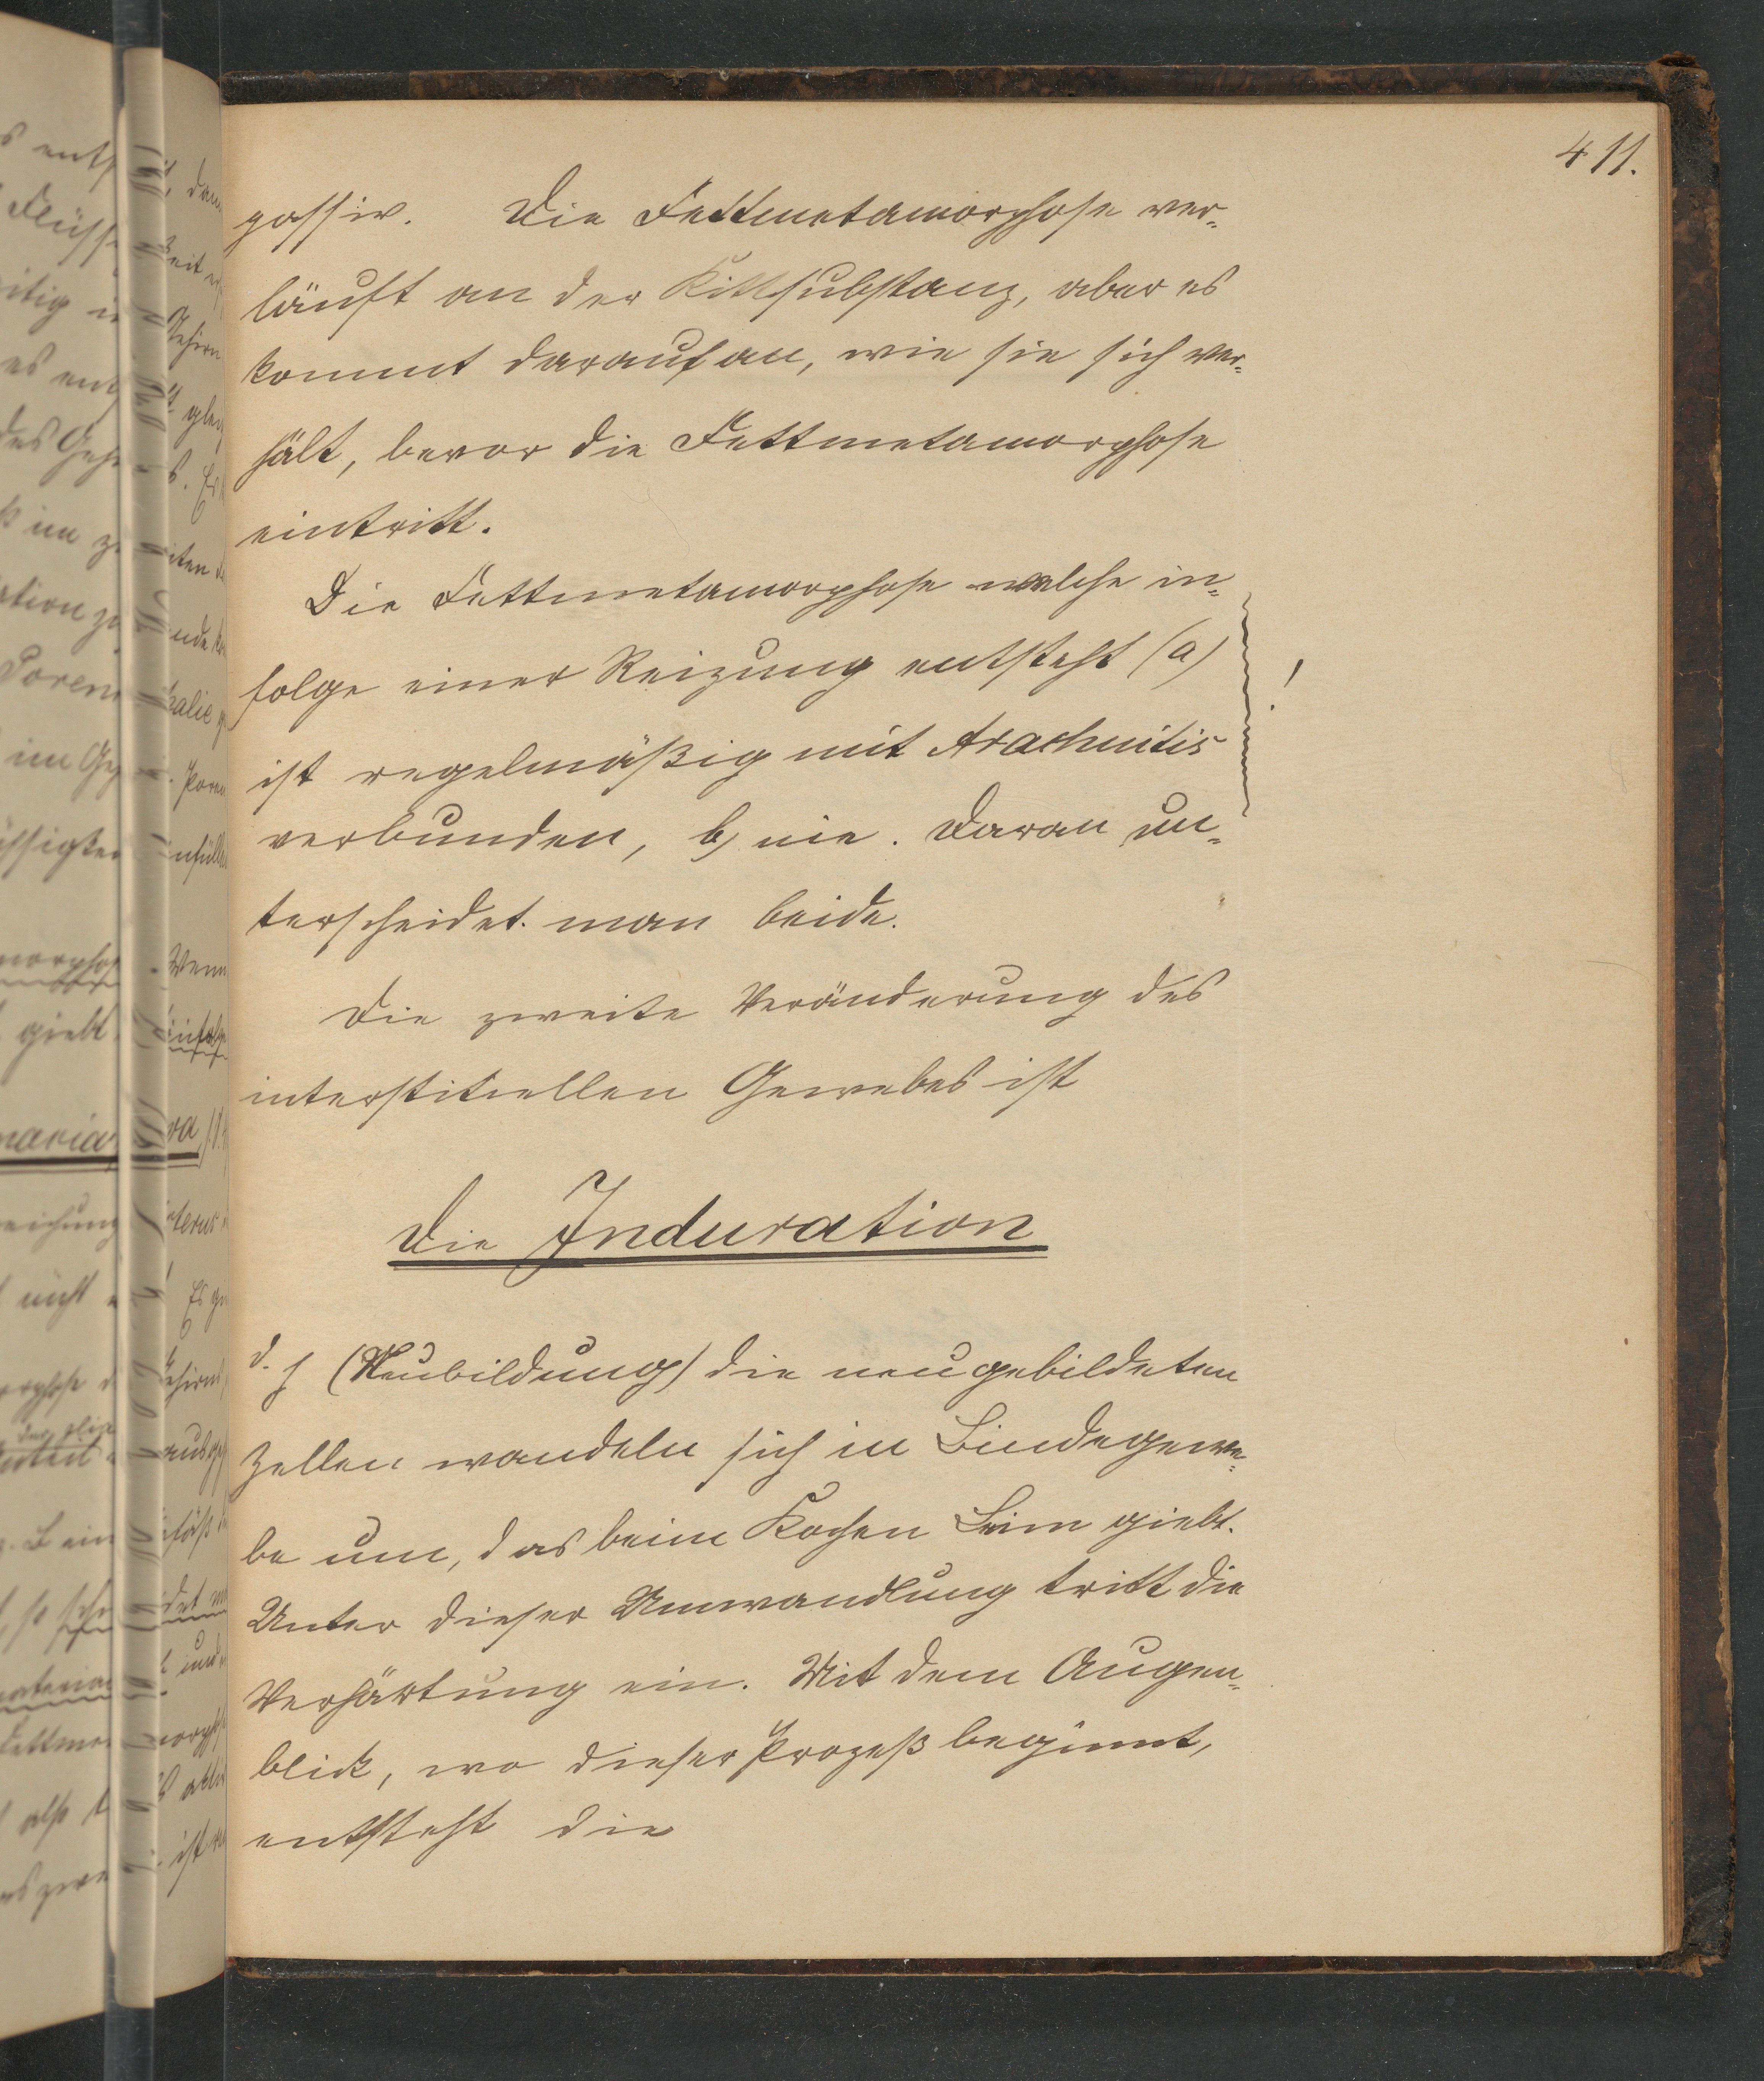 411.
passiv. Die Fettmetamorphose ver-
läuft an der Kittsubstanz, aber es
kommt darauf an, wie sie sich ver-
hält, bevor die Fettmetamorphose
eintritt.
Die Fettmetamorphose welche in-
folge einer Reizung entsteht (a)
!
ist regelmäßig mit Arachnitis
verbunden, b) nie. Daran un-
terscheidet man beide.
Die zweite Veränderung des
interstitiellen Gewebes ist
Die Induration
d. h (Neubildung) die neugebildeten
Zellen wandeln sich in Bindegewe-
be um, das beim Kochen Leim giebt.
Unter dieser Umwandlung tritt die
Verhärtung ein. Mit dem Augen-
blick, wo dieser Prozeß beginnt,
entsteht die